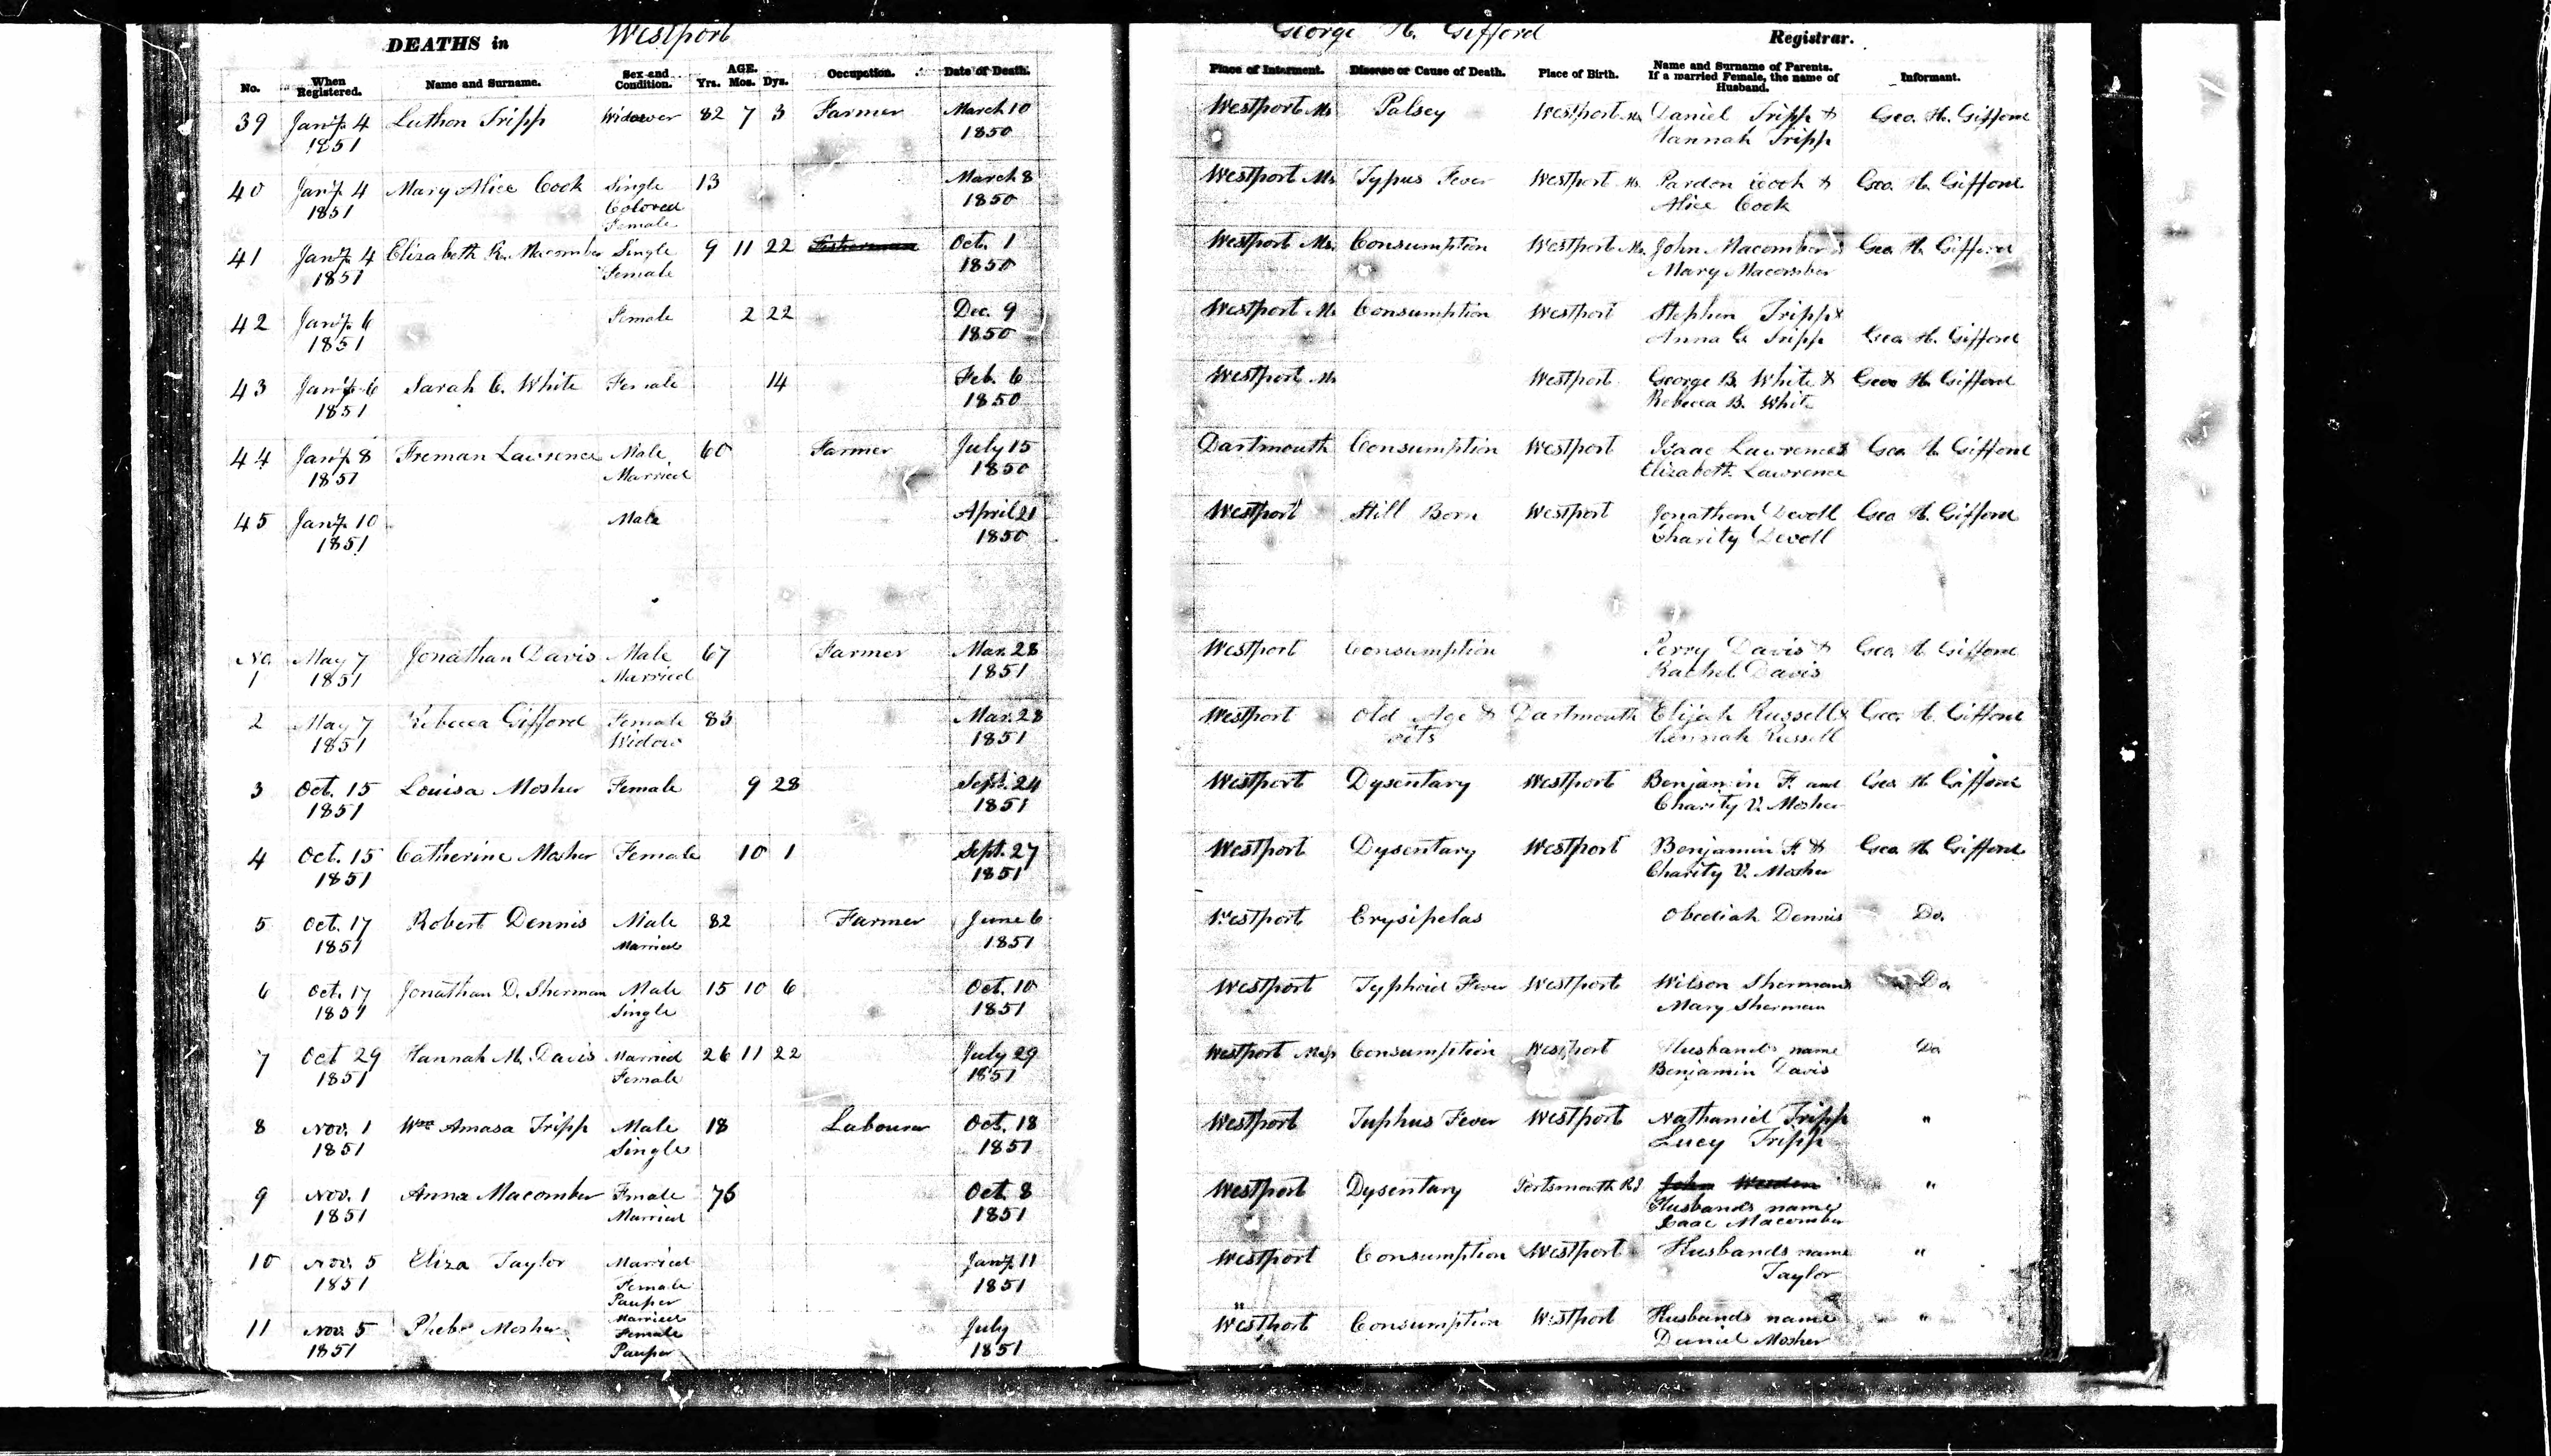 DEATHS in Westport George H. Gifford Registrar.
No. When Registered. Name and Surname. Sex and Condition. AGE. Yrs. Mos. Dys. Occupation. Date of Death. Place of Interment. Disease or Cause of Death. Place of Birth. Name and Surname of Parents. If a married Female, the name of Husband. Informant.
39 Jany. 4 Luthon Tripp Widower 82 7 3 Farmer March 10 Westport Ms Palsey Westport Ms Daniel Tripp & Geo. H. Gifford
1851 1850 Hannah Tripp
40 Jany. 4 Mary Alice Cook Single 13 March 8 Westport Ms Typus Fever Westport Ms. Pardon Cook & Geo. H. Gifford
1851 Colored 1850 Alice Cook
Female
41 Jany. 4 Elizabeth R. Macomber Single 9 11 22 Oct. 1 Westport Ms. Consumption Westport Ms. John Macomber & Geo. H. Gifford
1851 Female 1850 Mary Macomber
42 Jany. 6 Female 2 22 Dec. 9 Westport Ms Consumption Westport Stephen Tripp &
1851 1850 Anna G. Tripp Geo. H. Gifford
43 Jany. 6 Sarah C. White Female 14 Feb. 6 Westport Ms Westport George B. White & Geo. H. Gifford
1851 1850 Rebecca B. White
44 Jany. 8 Freman Lawrence Male 60 Farmer July 15 Dartmouth Consumption Westport Isaac Lawrence & Geo. H. Gifford
1851 Married 1850 Elizabeth Lawrence
45 Jany. 10 Male April 21 Westport Still Born Westport Jonathan Devoll Geo. H. Gifford
1851 1850 Charity Devoll
No. May 7 Jonathan Davis Male 67 Farmer Mar. 28 Westport Consumption Perry Davis & Geo. H. Gifford
1 1851 Married 1851 Rachel Davis
2 May 7 Rebecca Gifford Female 83 Mar. 28 Westport Old Age & Dartmouth Elijah Russell & Geo. H. Gifford
1851 Widow 1851 Hannah Russell
3 Oct. 15 Louisa Mosher Female 9 28 Sept. 24 Westport Dysentary Westport Benjamin F. and Geo. H. Gifford
1851 1851 Charity V. Mosher
4 Oct. 15 Catherine Mosher Female 10 1 Sept. 27 Westport Dysentary Westport Benjamin F. & Geo. H. Gifford
1851 1851 Charity V. Mosher
5 Oct. 17 Robert Dennis Male 82 Farmer June 6 Westport Erysipelas Obediah Dennis Do.
1851 Married 1851
6 Oct. 17 Jonathan D. Sherman Male 15 10 6 Oct. 10 Westport Typhoid Fever Westport Wilson Sherman & Do.
1851 Single 1851 Mary Sherman
7 Oct 29 Hannah M. Davis Married 26 11 22 July 29 Westport Mass Consumption Westport Husbands name Do
1851 Female 1851 Benjamin Davis
8 Nov. 1 Wm Amasa Tripp Male 18 Labourer Oct. 18 Westport Tuphus Fever Westport Nathaniel Tripp "
1851 Single 1851 Lucy Tripp
9 Nov. 1 Anna Macomber Female 76 Oct. 8 Westport Dysentary Portsmouth R.I. John "
1851 Married 1851 Husbands name
Isaac Macomber
10 Nov. 5 Eliza Taylor Married Jany. 11 Westport Consumption Westport Husbands name "
1851 Female 1851 Taylor
Pauper
11 Nov. 5 Phebe Mosher Married July Westport Consumption Westport Husbands name "
1851 Female 1851 Daniel Mosher
Pauper